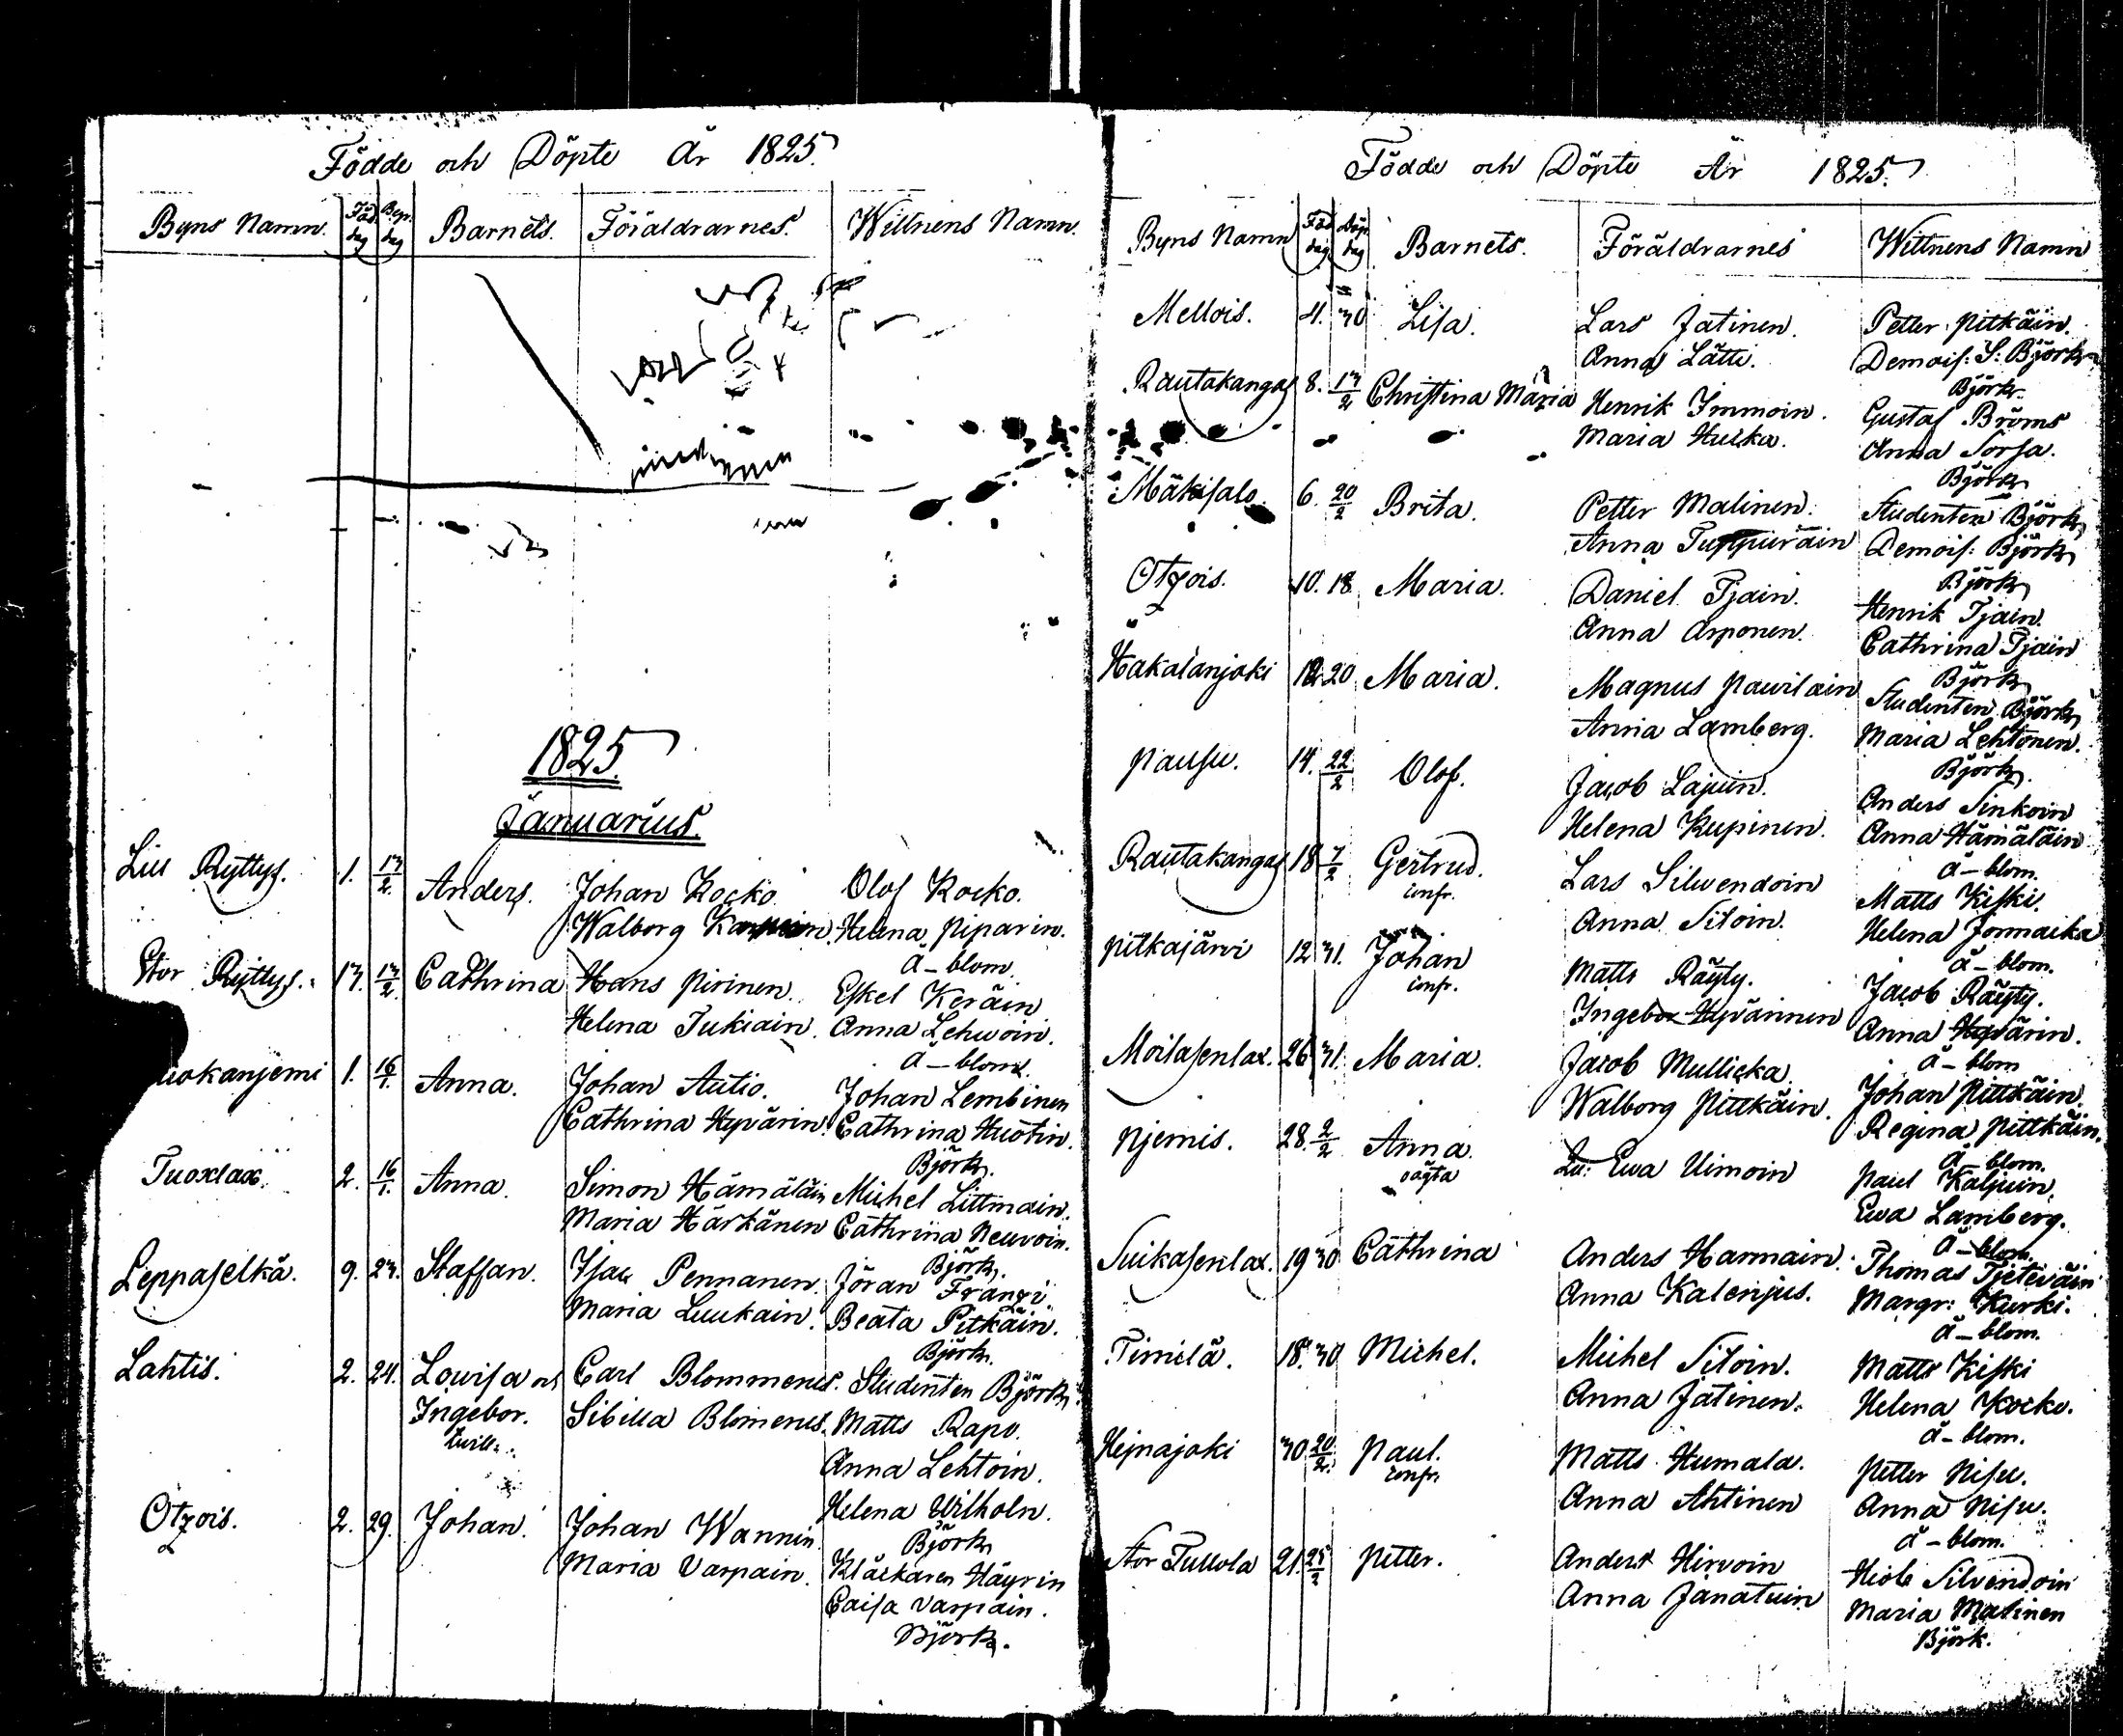 Födde och Döpte År 1825.
Byns Namn. Föd. dag Dop. dag Barnets. Föräldrarnes. Wittnens Namn.
1825
Januarius.
Lill Ryttys. 1. 13/2 Anders. Johan Kocko. Olof Kocko.
Walborg Helena Piparin.
ä - blom.
Stor Ryttys. 13. 13/2. Cathrina Hans Pirinen. Eskel Keräin
Helena Tukiain. Anna Lehwoin.
ä - blom.
1. 16/1. Anna. Johan Autio. Johan Lembinen
Cathrina Hyvärin. Cathrina Huotin.
Björk.
Tuoxlax. 2. 16/1. Anna. Simon Hämäläin Michel Littmain.
Maria Härkänen Cathrina Neuvoin.
Björk.
Leppäselkä. 9. 23. Staffan. Isac Pennanen. Jöran Franzi.
Maria Luukain. Beata Pitkäin.
Björk.
Lahtis. 2. 24. Lovisa och Carl Blommerus. Studenten Björk.
Ingebor. Sibilla Blomerus. Matts Rapo.
tvill. Anna Lehtoin.
Helena Wilholm.
Björk
Otzois. 2. 29. Johan. Johan Wannin. Kläckaren Häyrin
Maria Varpain. Caisa Varpain.
Björk.
Födde och Döpte År 1825.
Byns Namn Föd dag Döp. dag Barnets. Föräldrarnes Wittnens Namn
Mellois. 4. 30 Lisa. Lars Jatinen. Petter Pitkäin.
Anna Lätti. Demois: S: Björk
Björk.
Rautakangas 8. 13/2 Christina Maria Henrik Immoin. Gustaf Bröms
Maria Hucka. Anna Sorsa.
Björk
Mäkisalo. 6. 20/2 Brita. Petter Malinen. Studenten Björk
Anna Tuppuräin Demois: Björk
Björk
Otzois. 10. 18 Maria. Daniel Tjain. Henrik Tjain.
Anna Asponen. Cathrina Tjain
Björk
Hakalanjoki 12 20 Maria. Magnus Pavilain Studenten Björk
Anna Lamberg. Maria Lehtonen.
Björk.
Pausu. 14. 22/2 Olof. Jacob Lajuin. Anders Sinkoin
Helena Kupinen. Anna Hämäläin
ä - blom.
Rautakangas 18 7/2 Gertrud. Lars Silvendoin Matts Kiski.
confr. Anna Siloin. Helena Jormacka
ä - blom.
Pitkajärvi 12 31. Johan Matts Räyty. Jacob Räyty.
confr. Ingebor Hyvärinen Anna Hyvärin.
ä - blom
Moilasenlax. 26 31. Maria. Jacob Mullicka Johan Pittkäin.
Walborg Pittkäin. Regina Pittkäin.
ä - blom.
Njemis. 28. 2/2 Anna. Ewa Uimoin Paul Kaljuin.
oägta Ewa Lamberg.
ä - blom.
Suikasenlax. 19 30 Cathrina Anders Harmain. Thomas Tjeteväin
Anna Kalenjus. Margr: Kurki.
ä - blom.
Timilä. 18. 30 Michel. Michel Siloin. Matts Kiski
Anna Jatinen. Helena Kocko.
ä - blom.
Hejnajoki 30. 20/2. Paul. Matts Humala. Petter Nisu.
confr. Anna Ahtinen Anna Nisu.
ä - blom.
Stor Tullola 21. 25/2 Petter. Anders Hirvoin Hiob Silvendoin
Anna Janatuin Maria Malinen
Björk.